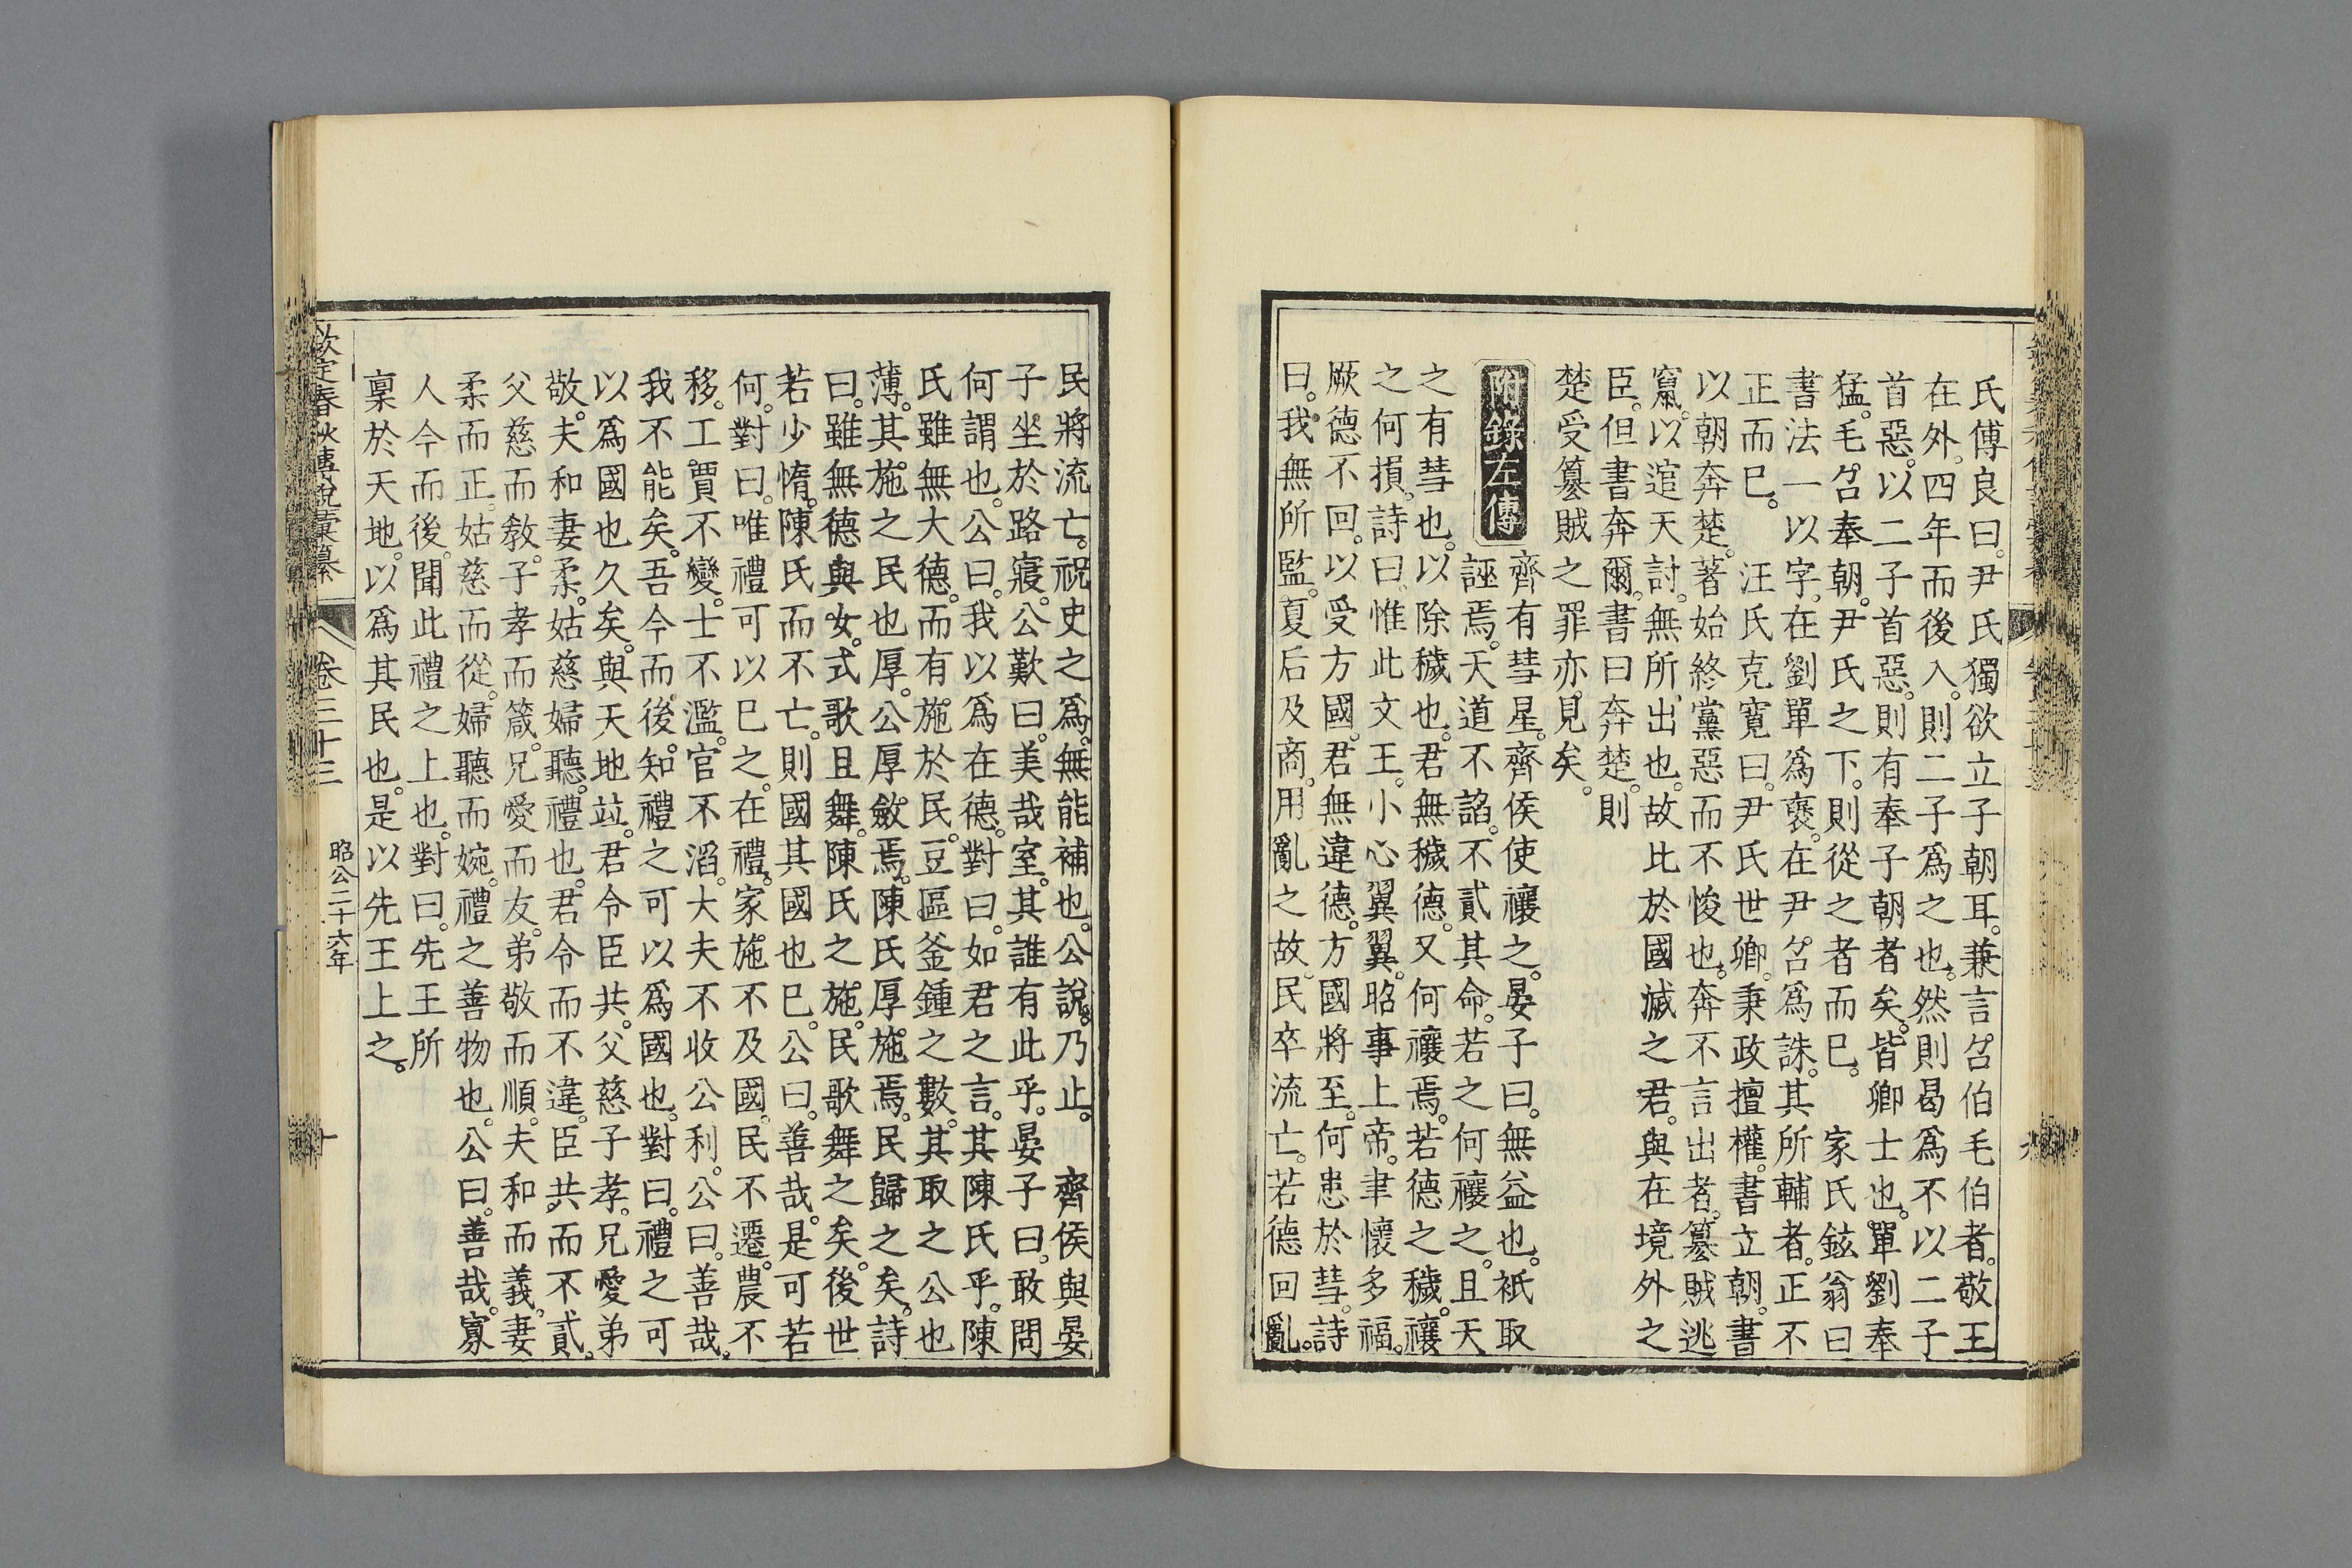 氏傅良曰。尹氏獨欲立子朝耳。兼言召伯毛伯者。敬王
在外。四年而後入。則二子爲之也。然則曷爲不以二子
首惡。以二子首惡。則有奉子朝者矣。皆卿士也。單劉奉
猛。毛召奉朝。尹氏之下。則從之者而巳。　家氏鉉翁曰
書法一以字。在劉單爲襃。在尹召爲誅。其所輔者。正不
正而巳。　汪氏克寬曰。尹氏世卿。秉政擅權。書立朝。書
以朝奔楚。著始終黨惡而不悛也。奔不言出者。簒賊逃
竄。以逭天討。無所出也。故比於國滅之君。與在境外之
臣。但書奔爾。書曰奔楚。則
楚受簒賊之罪亦見矣。
附錄左傳
齊有彗星。齊侯使禳之。晏子曰。無益也。衹取
誣焉。天道不謟。不貳其命。若之何禳之。且天
之有彗也。以除穢也。君無穢德。又何禳焉。若德之穢。禳
之何損。詩曰。惟此文王。小心翼翼。昭事上帝。聿懷多福。
厥德不回。以受方國。君無違德。方國將至。何患於彗。詩
曰。我無所監。夏后及商。用亂之故。民卒流亡。若德回亂。
民將流亡。祝史之爲。無能補也。公說。乃止。　齊侯與晏
子坐於路寢。公歎曰。美哉室。其誰有此乎。晏子曰。敢問
何謂也。公曰。我以爲在德。對曰。如君之言。其陳氏乎。陳
氏雖無大德。而有施於民。豆區釜鍾之數。其取之公也
薄。其施之民也厚。公厚斂焉。陳氏厚施焉。民歸之矣。詩
曰。雖無德與女。式歌且舞。陳氏之施。民歌舞之矣。後世
若少惰。陳氏而不亡。則國其國也巳。公曰。善哉。是可若
何。對曰。唯禮可以巳之。在禮。家施不及國。民不遷。農不
移。工賈不變。士不濫。官不滔。大夫不收公利。公曰。善哉。
我不能矣。吾今而後。知禮之可以爲國也。對曰。禮之可
以爲國也久矣。與天地竝。君令臣共。父慈子孝。兄愛弟
敬。夫和妻柔。姑慈婦聽。禮也。君令而不違。臣共而不貳。
父慈而敎。子孝而箴。兄愛而友。弟敬而順。夫和而義。妻
柔而正。姑慈而從。婦聽而婉。禮之善物也。公曰。善哉。寡
人今而後。聞此禮之上也。對曰。先王所
稟於天地。以爲其民也。是以先王上之。
欽定春秋傳說彙纂
卷三十三
昭公二十六年
十